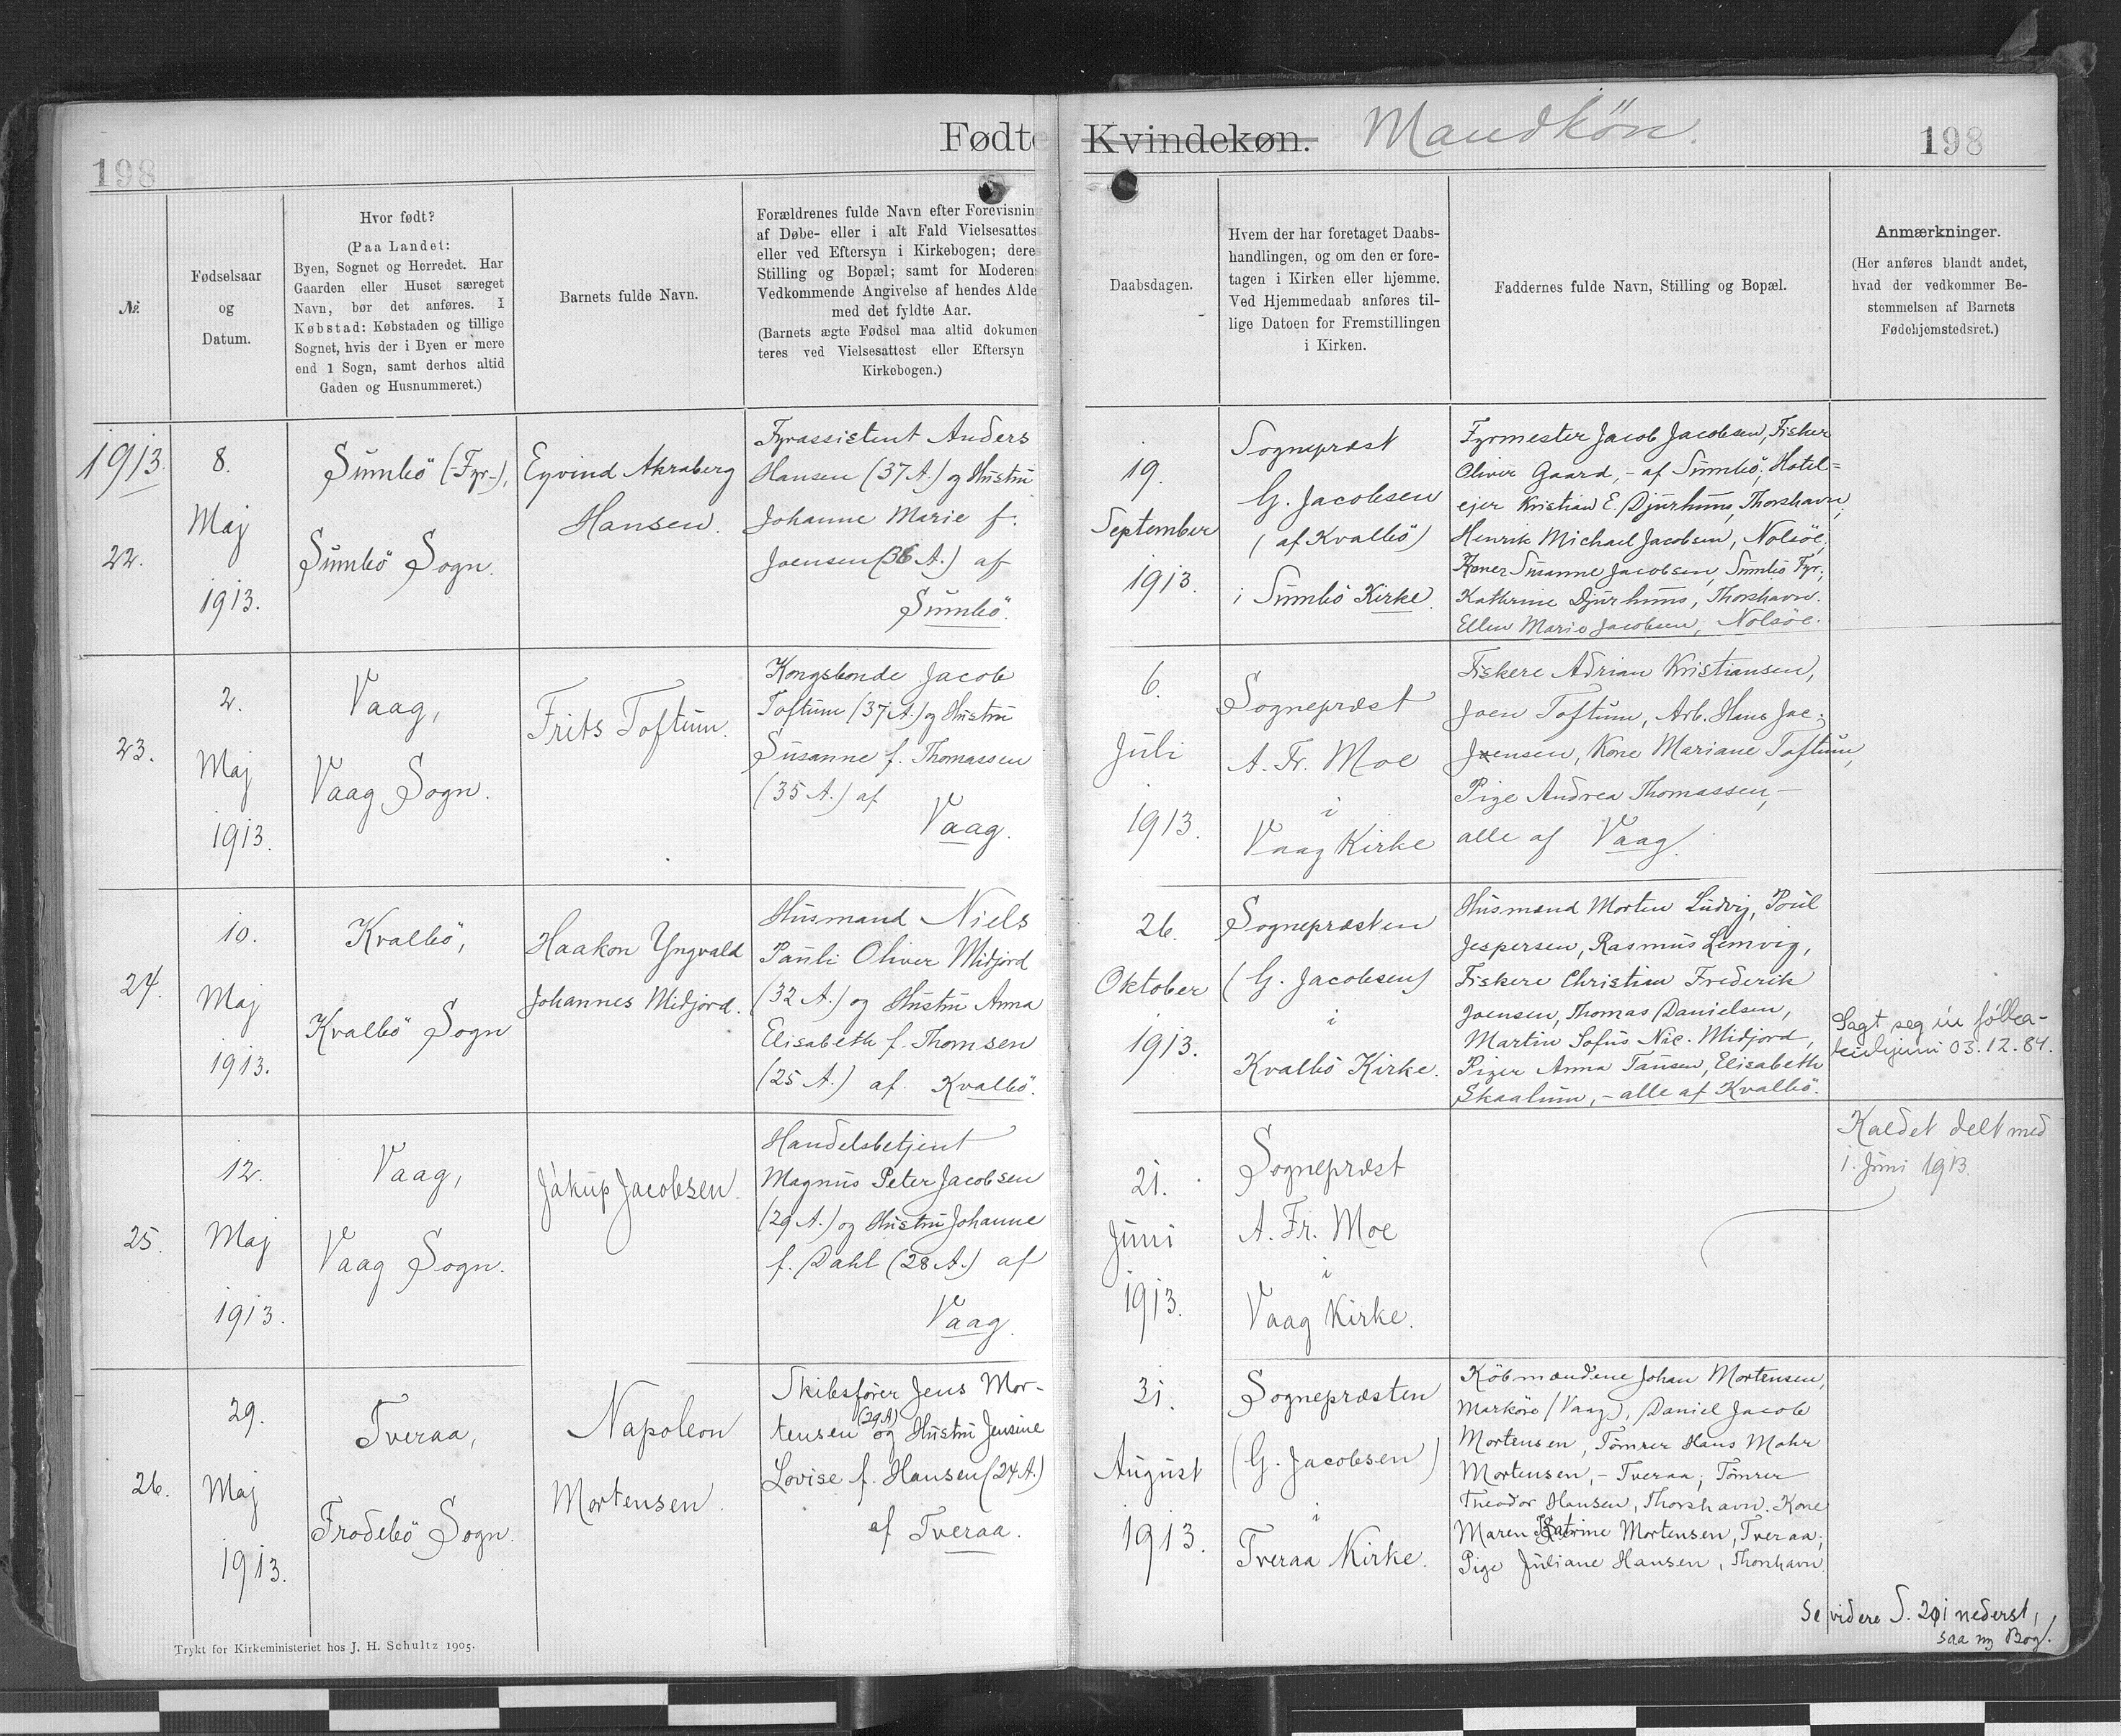 198
Fødte
Kvindekøn. Mandkøn.
198
№
Fødselsaar
og
Datum.
Hvor født?
(Paa Landet:
Byen, Sognet og Herredet. Har
Gaarden eller Huset særeget
Navn, bør det anføres. I
Købstad: Købstaden og tillige
Sognet, hvis der i Byen er mere
end 1 Sogn, samt derhos altid
Gaden og Husnummeret.)
Barnets fulde Navn.
Forældrenes fulde Navn efter Forevisnin
af Døbe- eller i alt Fald Vielsesattes
eller ved Eftersyn i Kirkebogen; dere
Stilling og Bopæl; samt for Moderen
Vedkommende Angivelse af hendes Alde
med det fyldte Aar.
(Barnets ægte Fødsel maa altid dokumen
teres ved Vielsesattest eller Eftersyn
Kirkebogen.)
Daabsdagen.
Hvem der har foretaget Daabs-
handlingen, og om den er fore-
tagen i Kirken eller hjemme.
Ved Hjemmedaab anføres til-
lige Datoen for Fremstillingen
i Kirken.
Faddernes fulde Navn, Stilling og Bopæl.
Anmærkninger.
(Her anføres blandt andet,
hvad der vedkommer Be-
stemmelsen af Barnets
Fødehjemstedsret.)
1913.
22.
8.
Maj
1913.
Sumbö (-Fyr-),
Sumbö Sogn.
Eyvind Akraberg
Hansen.
Fyrassistent Anders
Hansen (37 A.) og Hustru
Johanne Marie f.
Joensen (36 A.) af
Sumbö.
19.
September
1913.
Sognepræst
G. Jacobsen
(af Kvalbö)
i Sumbö Kirke.
Fyrmester Jacob Jacobsen, Fisker
Oliver Gaard, - af Sumbö; Hotel=
ejer Kristian E. Djurhuus, Thorshavn;
Henrik Michael Jacobsen, Nolsöe;
Koner Susanne Jacobsen, Sumbö Fyr;
Kathrine Djurhuus, Thorshavn.
Ellen Marie Jacobsen, Nolsöe.
23.
2.
Maj
1913.
Vaag,
Vaag Sogn.
Frits Toftum.
Kongsbonde Jacob
Toftum (37 A.) og Hustru
Susanne f. Thomassen
(35 A.) af
Vaag.
6.
Juli
1913.
Sognepræst
A. Fr. Moe
i
Vaag Kirke
Fiskere Adrian Kristiansen,
Joen Toftum, Arb. Hans Jac.
Joensen, Kone Mariane Toftum,
Pige Andrea Thomassen, -
alle af Vaag.
24.
10.
Maj
1913.
Kvalbö,
Kvalbö Sogn
Haakon Yngvald
Johannes Midjord.
Husmand Niels
Pauli Oliver Midjord
(32 A.) og Hustru Anna
Elisabeth f. Thomsen
(25 A.) af Kvalbö.
26.
Oktober
1913.
Sognepræsten
(G. Jacobsen)
i
Kvalbö Kirke.
Husmænd Morten Ludvig, Poul
Jespersen, Rasmus Lemvig,
Fiskere Christian Frederik
Joensen, Thomas Danielsen,
Martin Sofus Nic. Midjord,
Piger Anna Tausen, Elisabeth
Skaalum, - alle af Kvalbö.
Sagt seg úr fólka-
kirkjuni 03.12.84.
25.
12.
Maj
1913.
Vaag,
Vaag Sogn.
Jákup Jacobsen.
Handelsbetjent
Magnus Peter Jacobsen
(29 A.) og Hustru Johanne
f. Dahl (28 A.) af
Vaag.
21.
Juni
1913.
Sognepræst
A. Fr. Moe
i
Vaag Kirke.
Kaldet delt med
1. Juni 1913.
26.
29.
Maj
1913.
Tveraa,
Frodebö Sogn.
Napoleon
Mortensen.
Skibsfører Jens Mor-
tensen (29 A) og Hustru Jensine
Lovise f. Hansen (24 A.)
af Tveraa.
31.
August
1913.
Sognepræsten
(G. Jacobsen)
i
Tveraa Kirke.
Købmændene Johan Mortensen,
Marköre (Vaag), Daniel Jacob
Mortensen, Tømrer Hans Mohr
Mortensen, - Tveraa; Tømrer
Theodor Hansen, Thorshavn. Kone
Maren Katrine Mortensen, Tveraa;
Pige Juliane Hansen, Thorshavn.
Se videre S. 201 nederst,
saa ny Bog.
Trykt for Kirkeministeriet hos J. H. Schultz 1905.